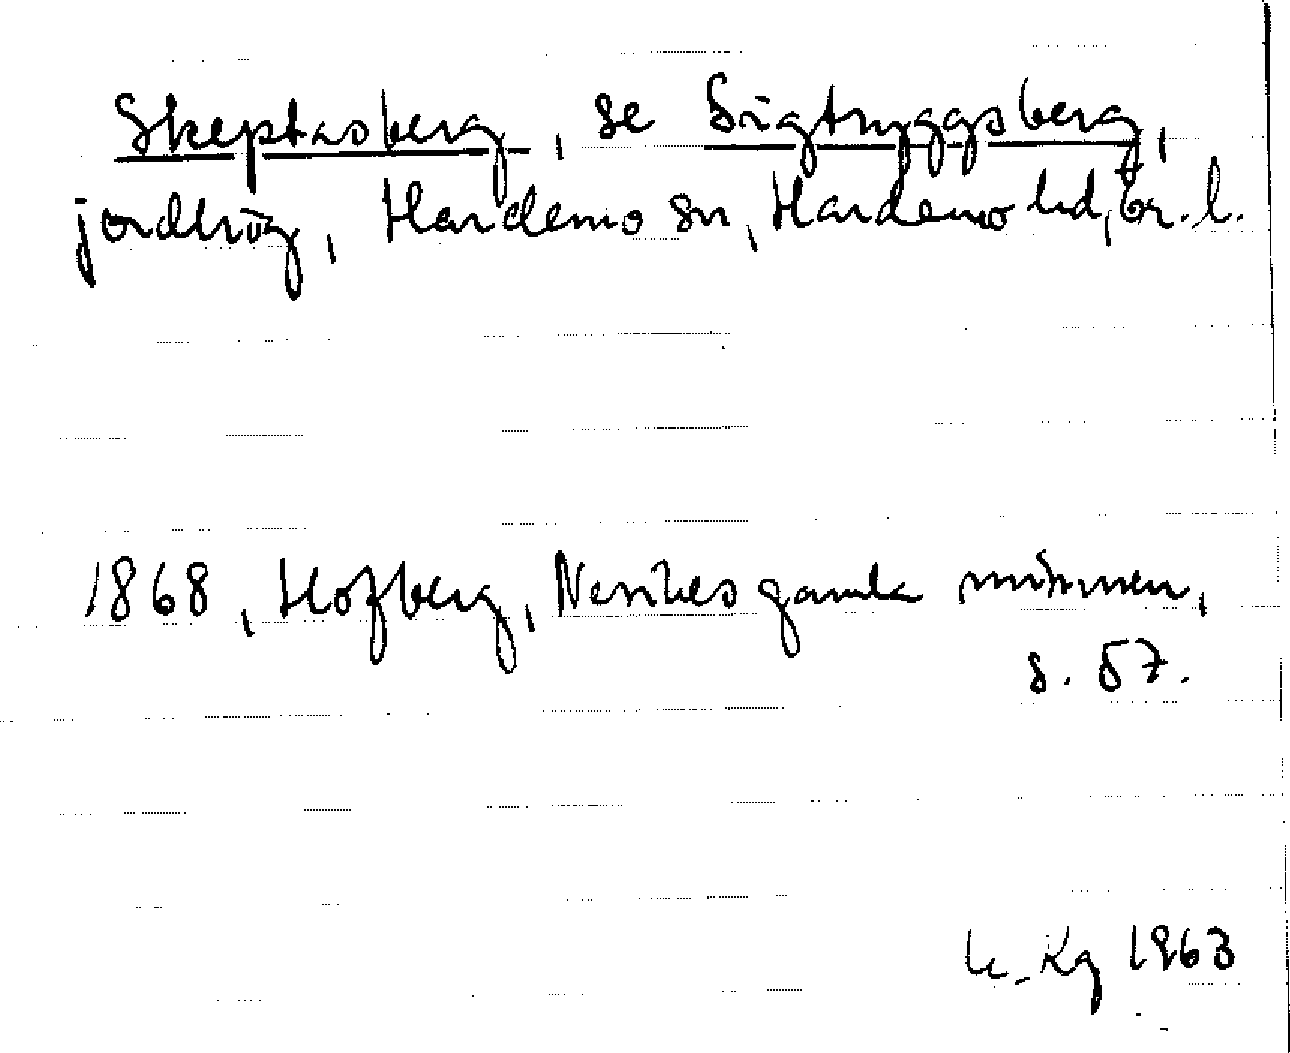 Skeptasberg, se Sigtryggsberg,
jordhög, Hardemo sn, Hardemo hd, Ör. l.
1868, Hofberg, Nerikes gamla minnen,
s. 57.
Kg 1963